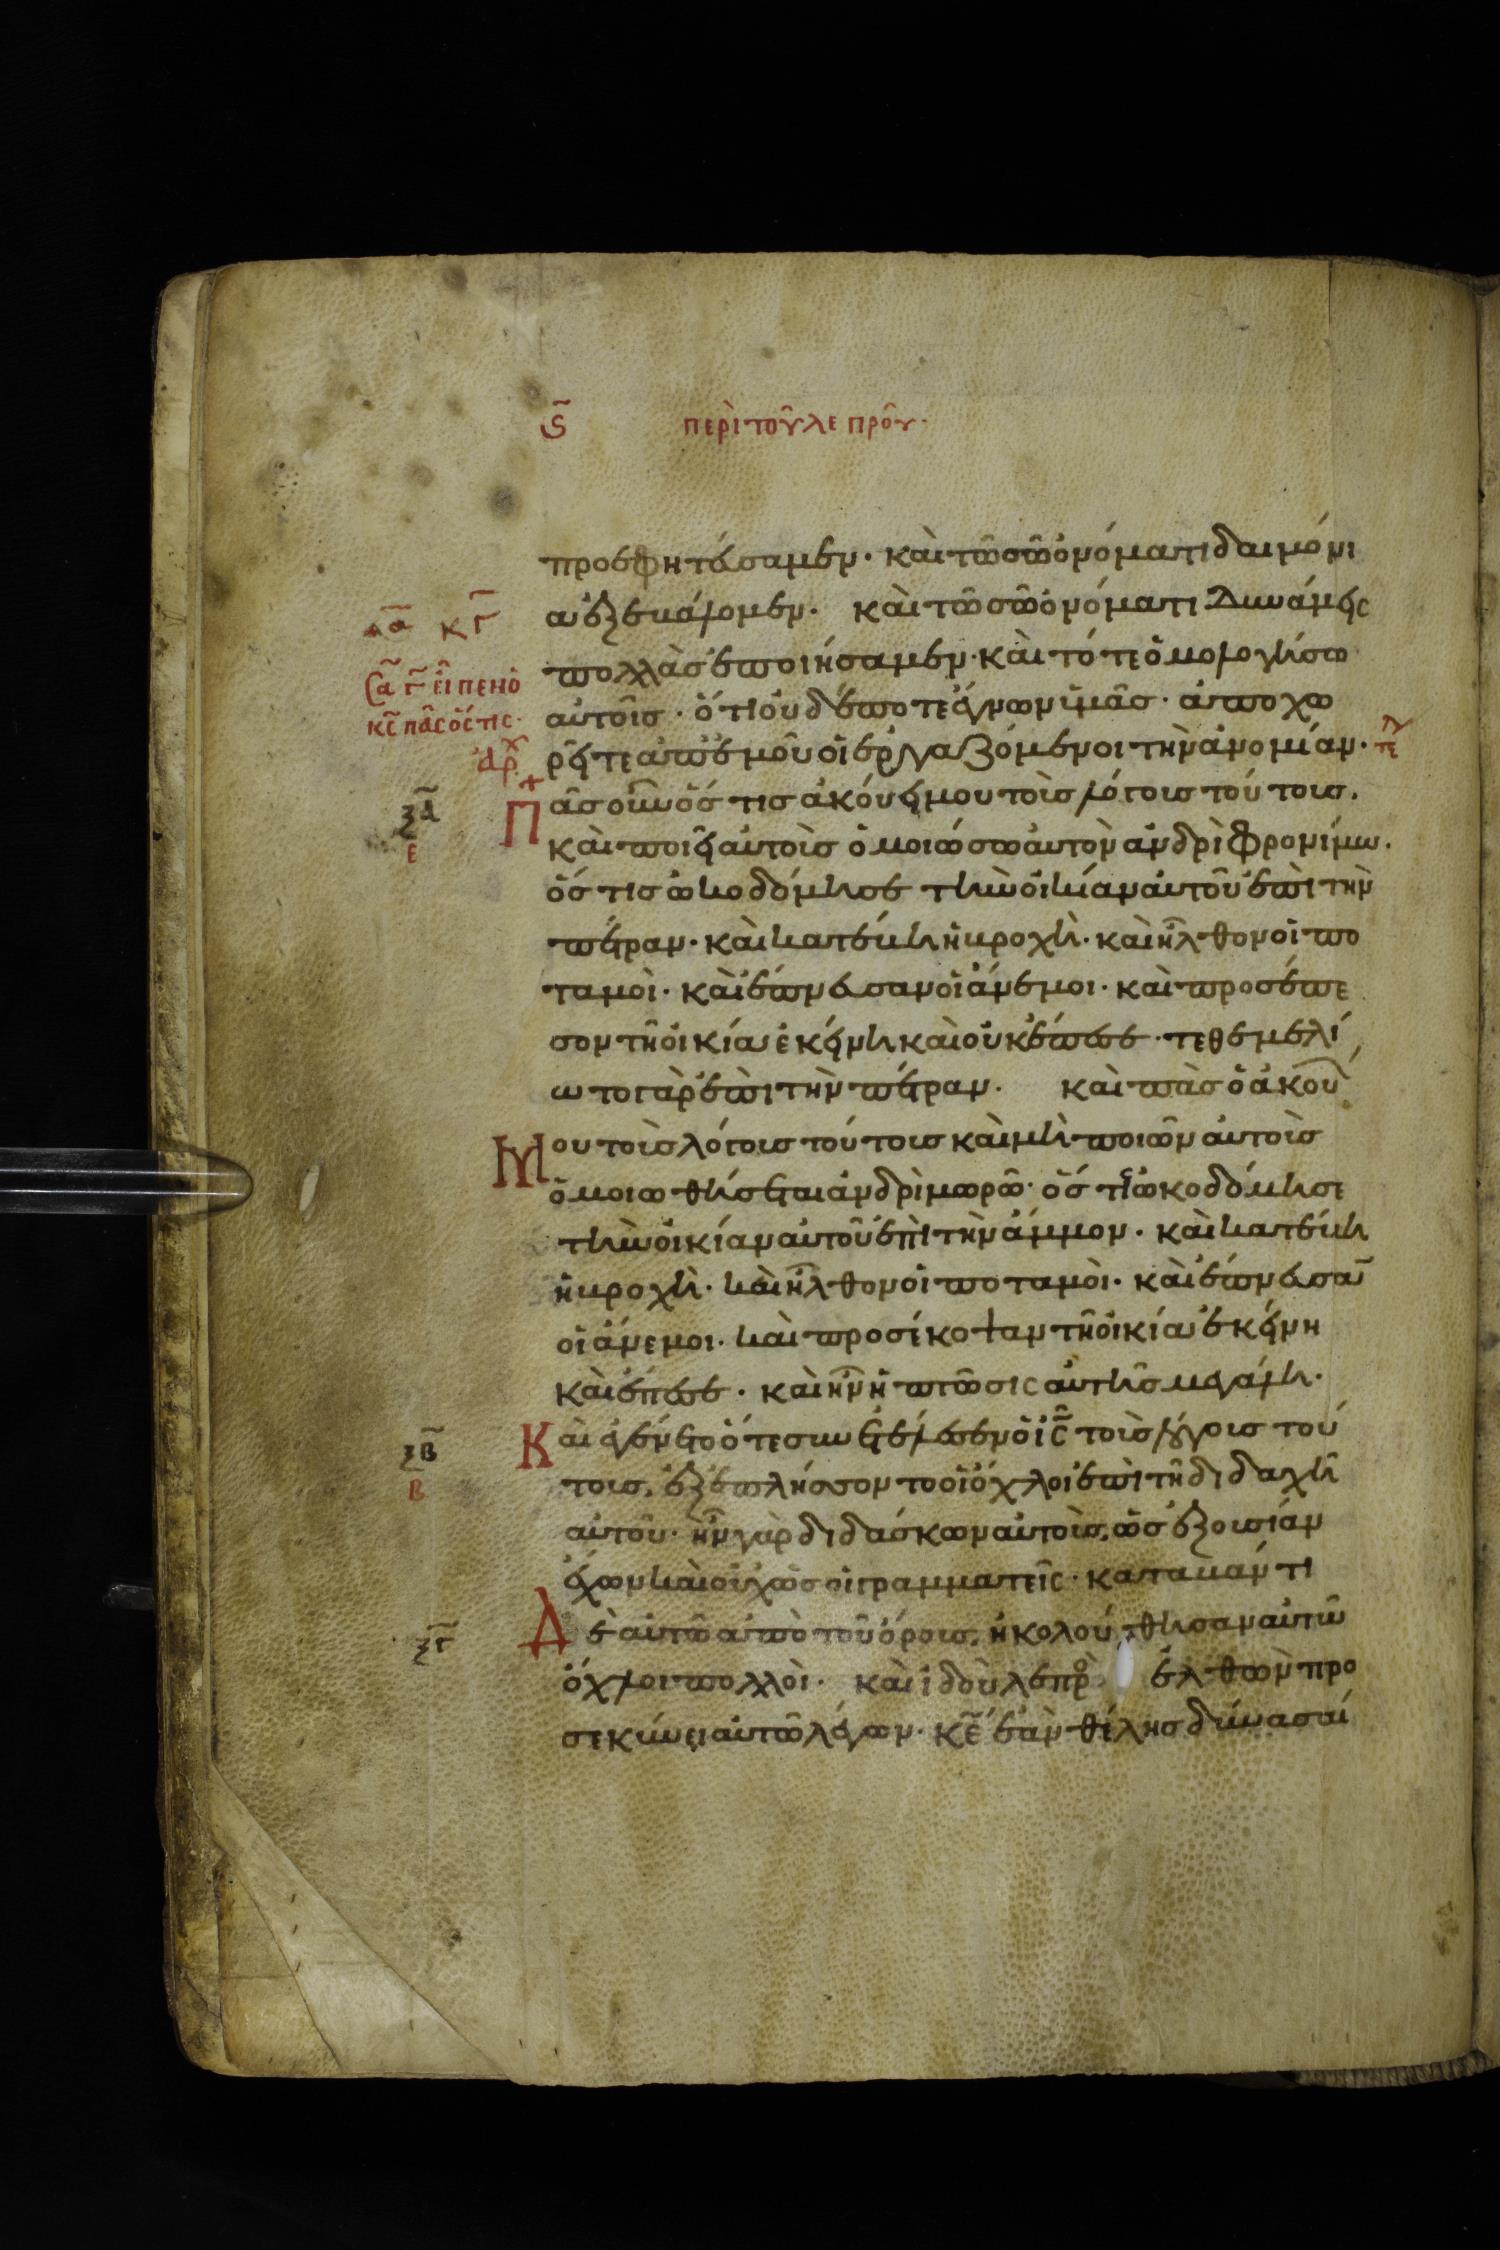 ϛ̅ περὶ τοῦ λεπροῦ·
προεφητεύσαμεν· καὶ τῶ σῶ ὀνόματι δαιμόνι
α ἐξεκάλομεν· καὶ τῶ σῶ ὀνόματι δυνάμεις
κ̅γ̅
πολλὰς ἐποιήσαμεν· καὶ τότε ὁμολογήσω
σα γ̅ εἶπεν ὁ
αὐτοῖς· ὅτι οὐδέποτε ἔγνων ὑμᾶς· ἀποχω
κ̅ς̅ πᾶς ὅστις·
ρεῖτε ἀπ' ἐμοῦ οἱ ἐργαζόμενοι τὴν ἀνομίαν·
ἀρχ
Πᾶς οὖν ὅστις ἀκούει μου τοὺς λόγοις τούτοις,
ξ̅α̅
ε̅
καὶ ποιεῖ αὐτοὺς ὁμοιώσω αὐτὸν ἀνδρὶ φρονίμω·
ὅστις ὠκοδόμησε τὴν οἰκίαν αὐτοῦ ἐπὶ τὴν
πέτραν· καὶ κατέβη ἡ βροχὴ· καὶ ἦλθον οἱ πο
ταμοὶ· καὶ ἔπνευσαν οἱ ἄνεμοι· καὶ προσέπε
σον τῆ οἰκία ἐκείνη καὶ οὐκ ἔπεσε· τεθεμελί
ωτο γὰρ ἐπὶ τὴν πέτραν· καὶ πᾶς ὁ ἀκού
Μου τοὺς λόγοις τούτοις καὶ μὴ ποιῶν αὐτοὺς
ὁμοιωθήσεται ἀνδρὶ μωρῶ· ὅστις ὠκοδόμησε
τὴν οἰκίαν αὐτοῦ ἐπὶ τὴν ἄμμον· καὶ κατέβη
ἡ βροχὴ· καὶ ἦλθον οἱ ποταμοὶ· καὶ ἔπνευσα̅
οἱ ἄνεμοι· καὶ προσέκοψαν τῆ οἰκία ἐκείνη
καὶ ἔπεσε· καὶ ἦν ἡ πτῶσις αὐτῆς μεγάλη·
Καὶ ἐγένετο ὅτε συνετέλεσεν ὁ ι̅ς̅ τοὺς λόγοις τού
ξ̅β̅
β
τοις, ἐξεπλήσσοντο οἱ ὄχλοι ἐπὶ τῆ διδαχῆ
αὐτοῦ· ἦν γὰρ διδάσκων αὐτοὺς, ὡς ἐξουσίαν
ἔχων καὶ οὐχ ὡς οἱ γραμματεῖς· καταβάντι
Δὲ αὐτῶ ἀπὸ τοῦ ὄρους, ἠκολούθησαν αὐτῶ
ξ̅γ̅
ὄχλοι πολλοὶ· καὶ ἰδοὺ λεπρὸ ἐλθὼν προ
σεκύνει αὐτῶ λέγων· κ̅ε̅ ἐὰν θέλης δύνασαί